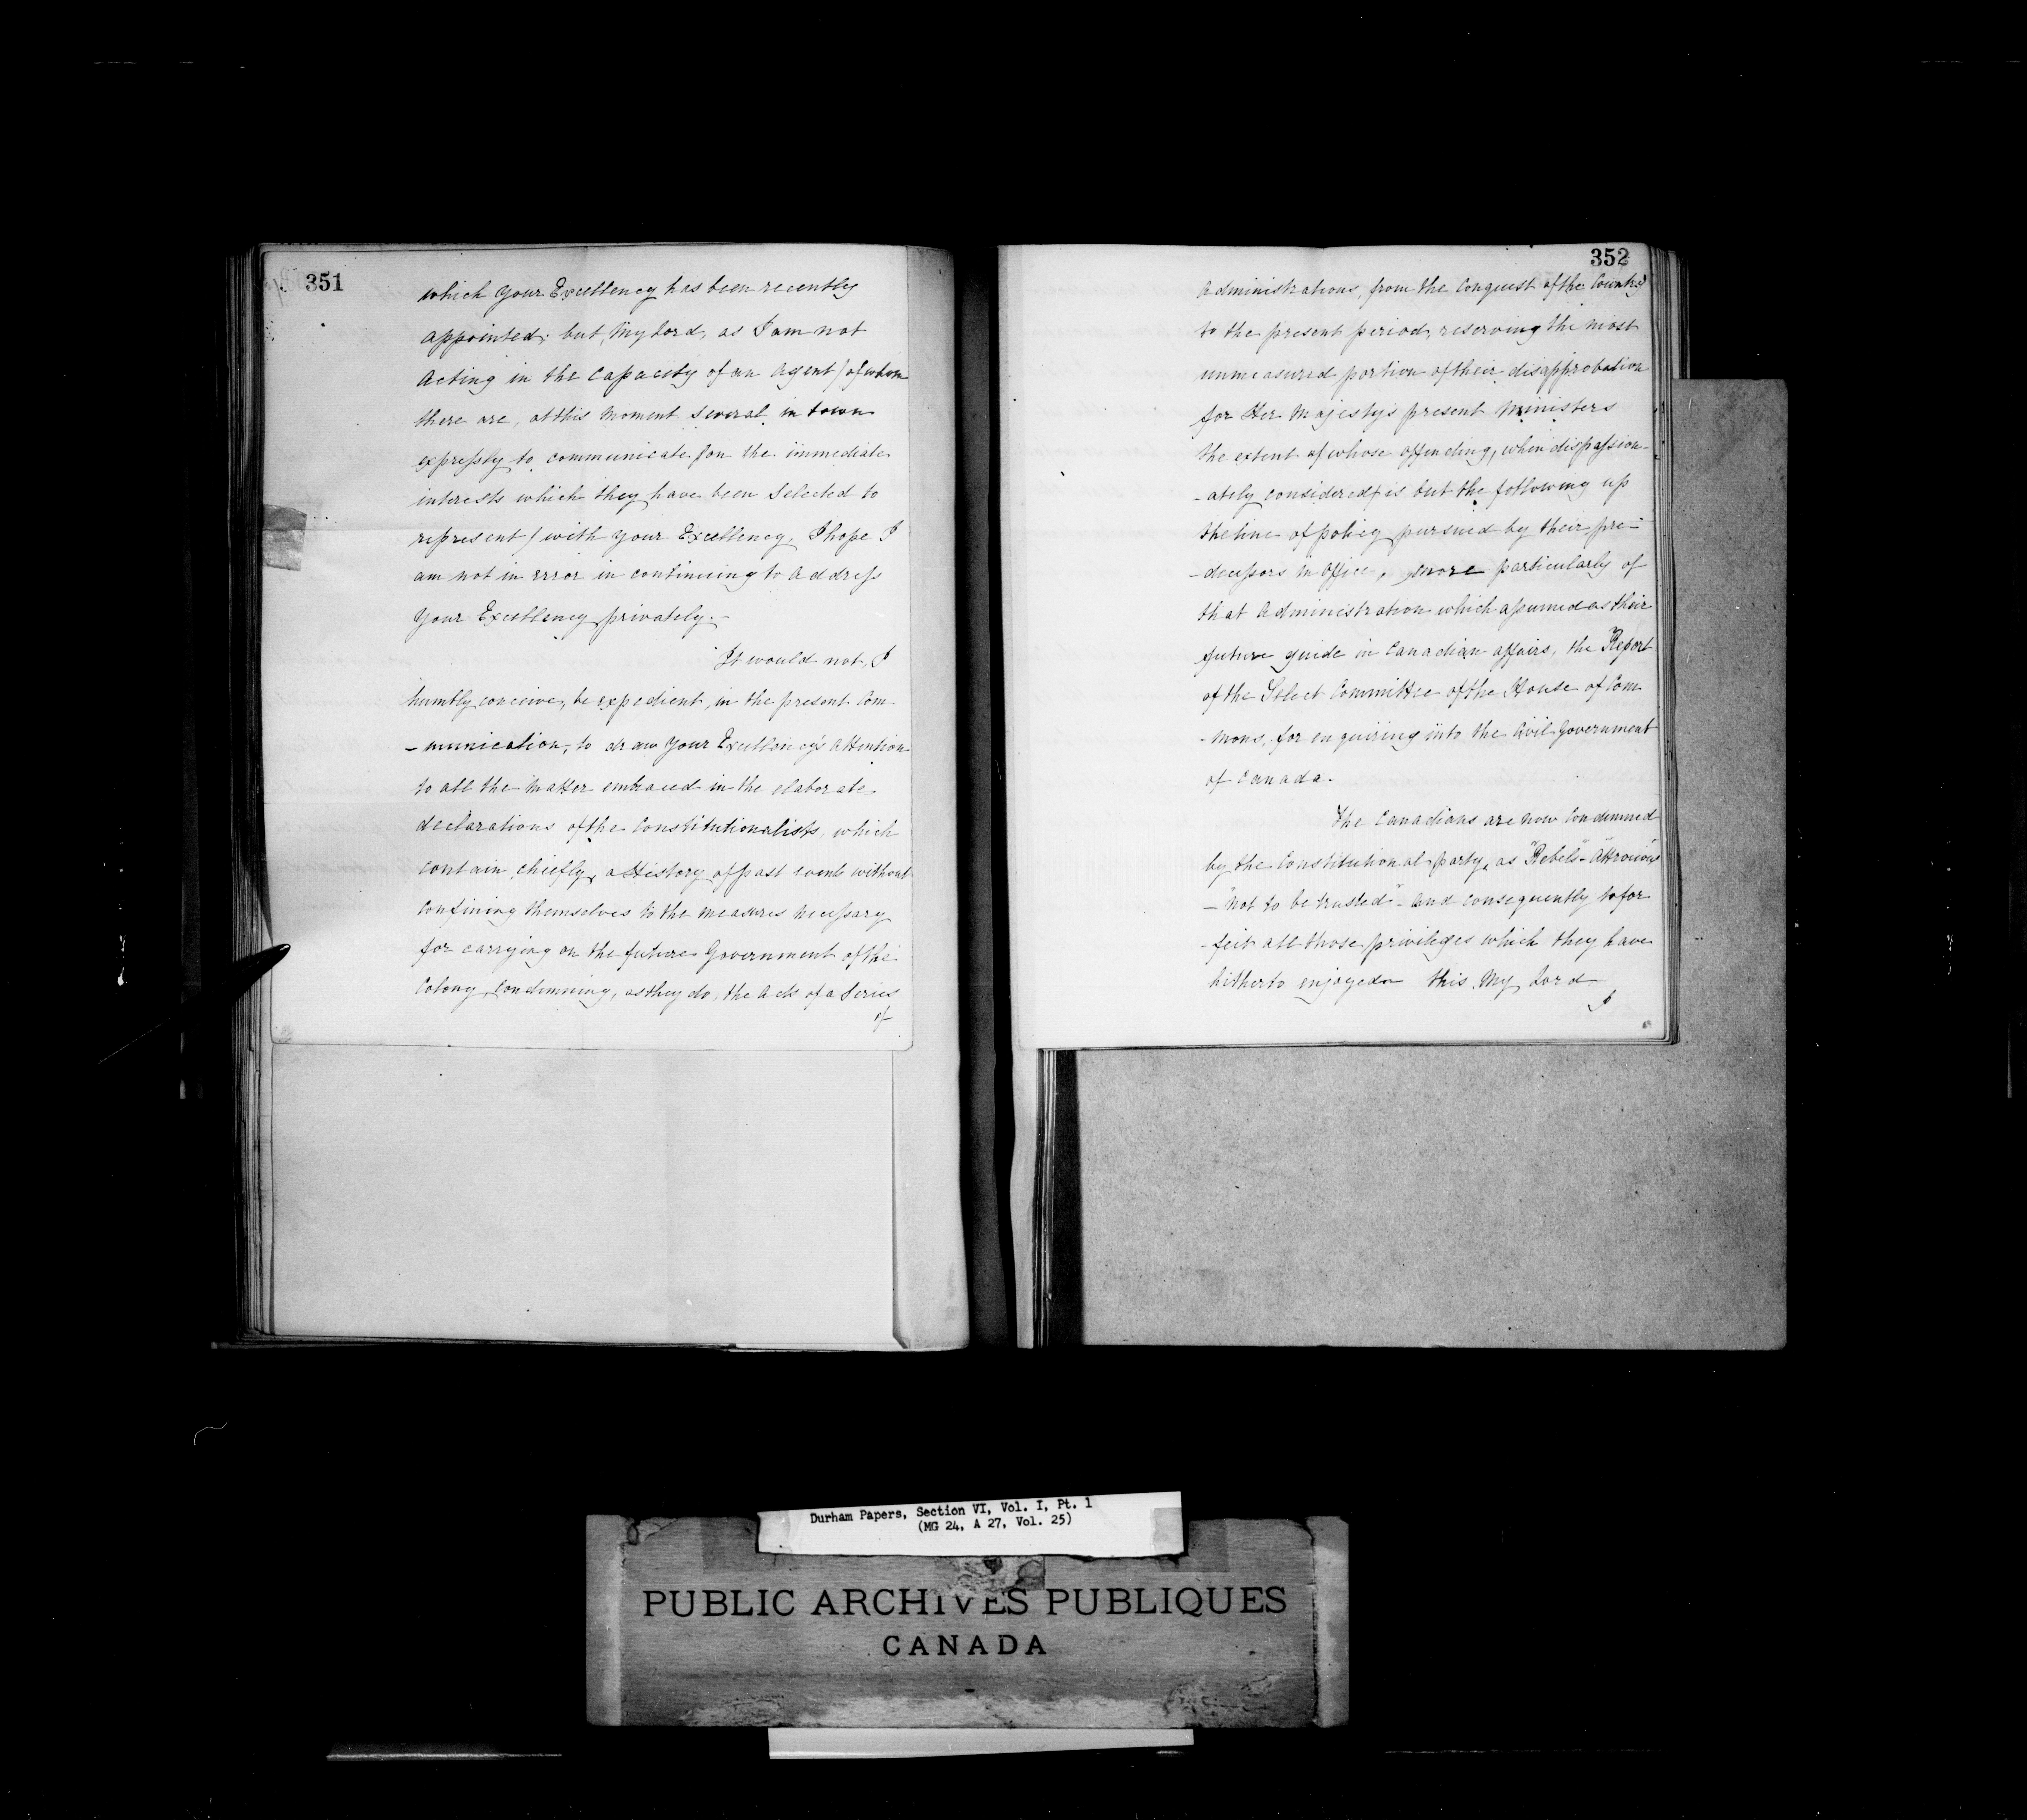 351
which Your Excellency has been recently
appointed; but, My Lord, as I am not
acting in the capacity of an Agent / of whom
there are, at this moment several in town
expressly to communicate / on the immediate
interests which they have been selected to
represent / with Your Excellency, I hope I
am not in error in continuing to address
Your Excellency privately.-
It would not, I
humbly conceive, be expedient, in the present Com
-munication, to draw Your Excellency's attention
to all the Matter embraced in the elaborate
declarations of the Constitutionalists, which
contain, chiefly, a History of past events without
confining themselves to the measures necessary
for carrying on the future Government of the
Colony, Condemning, as they do, the Acts of a Series
of
352
Administrations, from the Conquest of the Country
to the present period, reserving the most
unmeasured portion of their disapprobation
for Her Majesty's present Ministers
the extent of whose offending, when dispassion-
-ately considered, is but the following up
the line of policy pursued by their pre-
-decessors in Office, more particularly of
that Administration which assumed as their
future guide in Canadian affairs, the Report
of the Select Committee of the House of Com
-mons, for enquiring into the Civil Government
of Canada.
The Canadians are now Condemned
by the Constitutional party, as "Rebels" - Attrocious
- "not to be trusted" - and consequently to for
-feit all those privileges which they have
hitherto enjoyed - this, My Lord
I
Durham Papers, Section VI, Vol. I, Pt. 1
(MG 24, A 27, Vol. 25)
PUBLIC ARCHIVES PUBLIQUES
CANADA